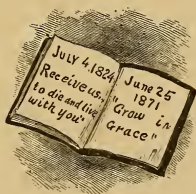 July 4, 1824
Receive us,
to die and live
with you"
June 25
1871
"Grow in
Grace"